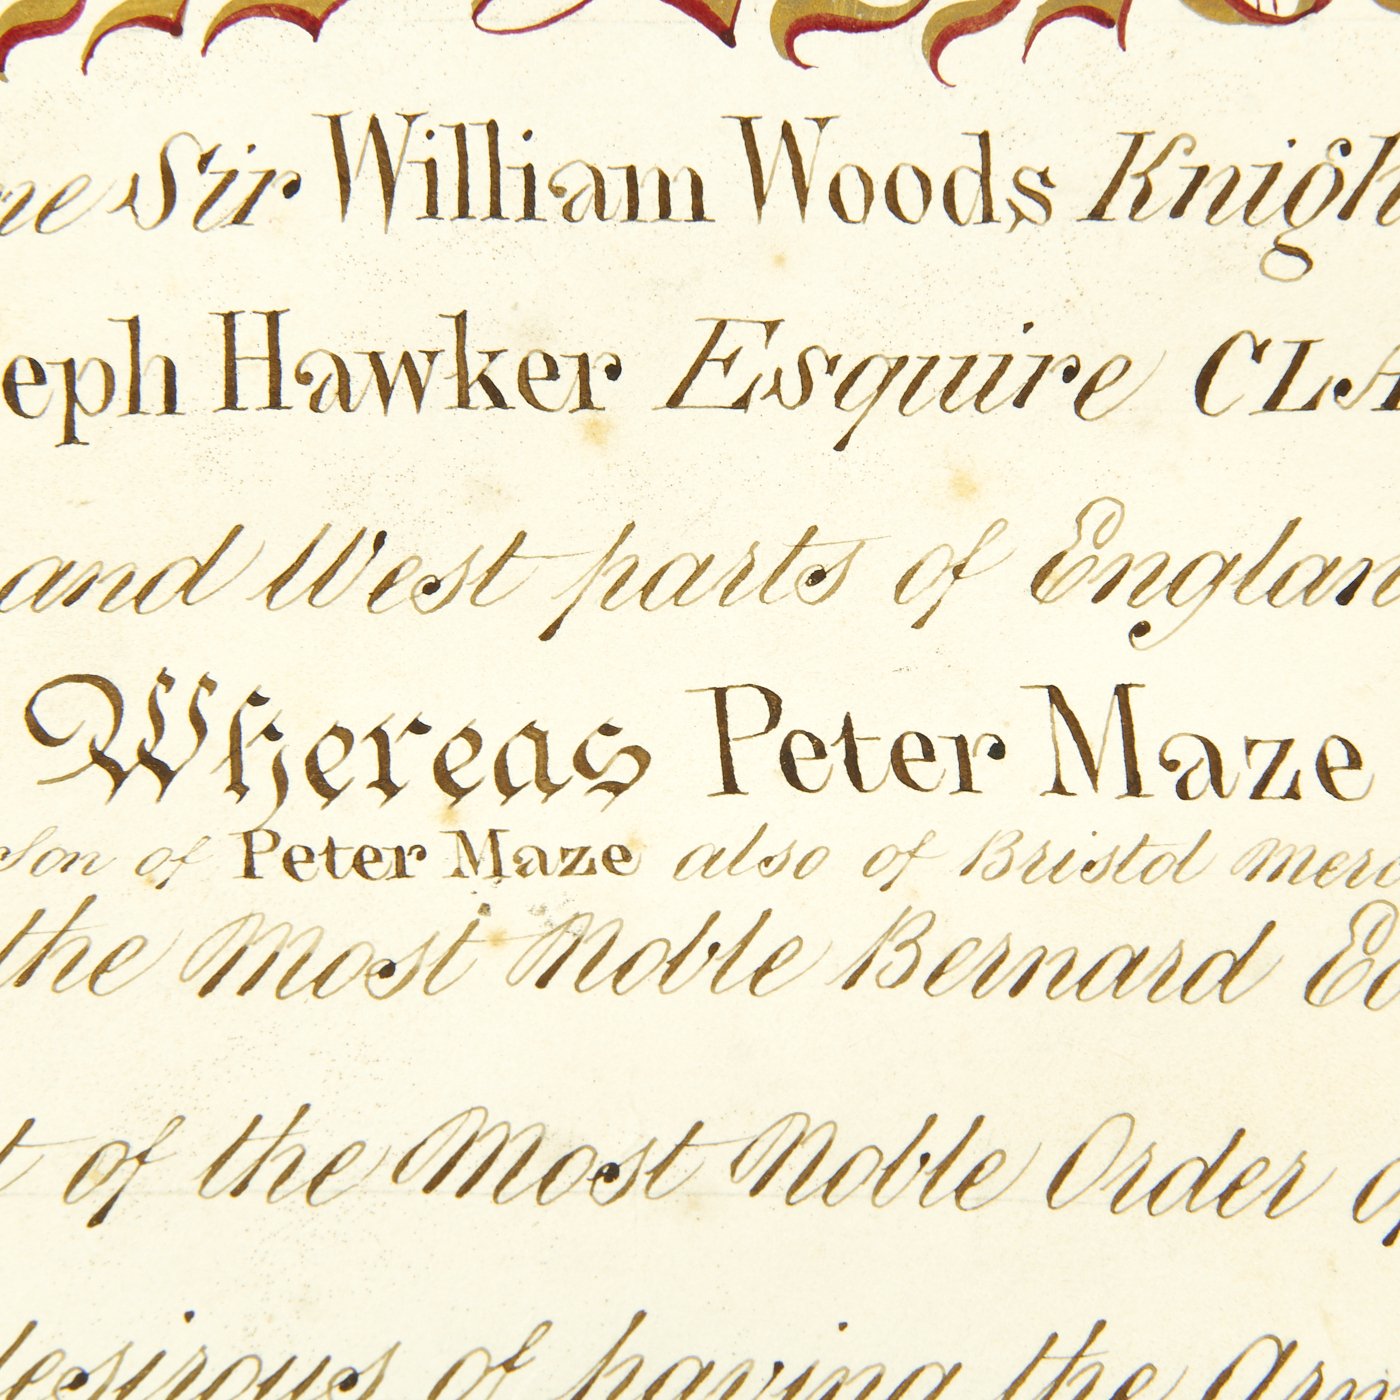 Sir William Woods Knigh
eph Hawker Esquire CLA
and West parts of Englan
Whereas Peter Maze
Son of Peter Maze also of Bristol merc
the Most Noble Bernard Ed
t of the Most Noble Order o
desirous of having the Arm